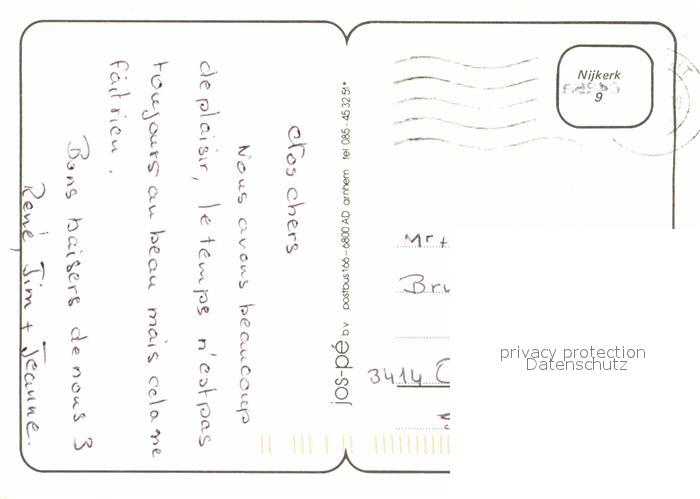 Mos chers
Nous avons beaucoup
de plaisir, le temps n'est pas
toujours au beau mais cela ne
fait rien.
Bons baisers de nous 3
René, Jim + Jeanne.
jos-pé bv postbus 166 - 6800 AD arnhem tel 085 - 45 32 51*
Nijkerk
9
Mr +
Bru
3414
privacy protection
Datenschutz